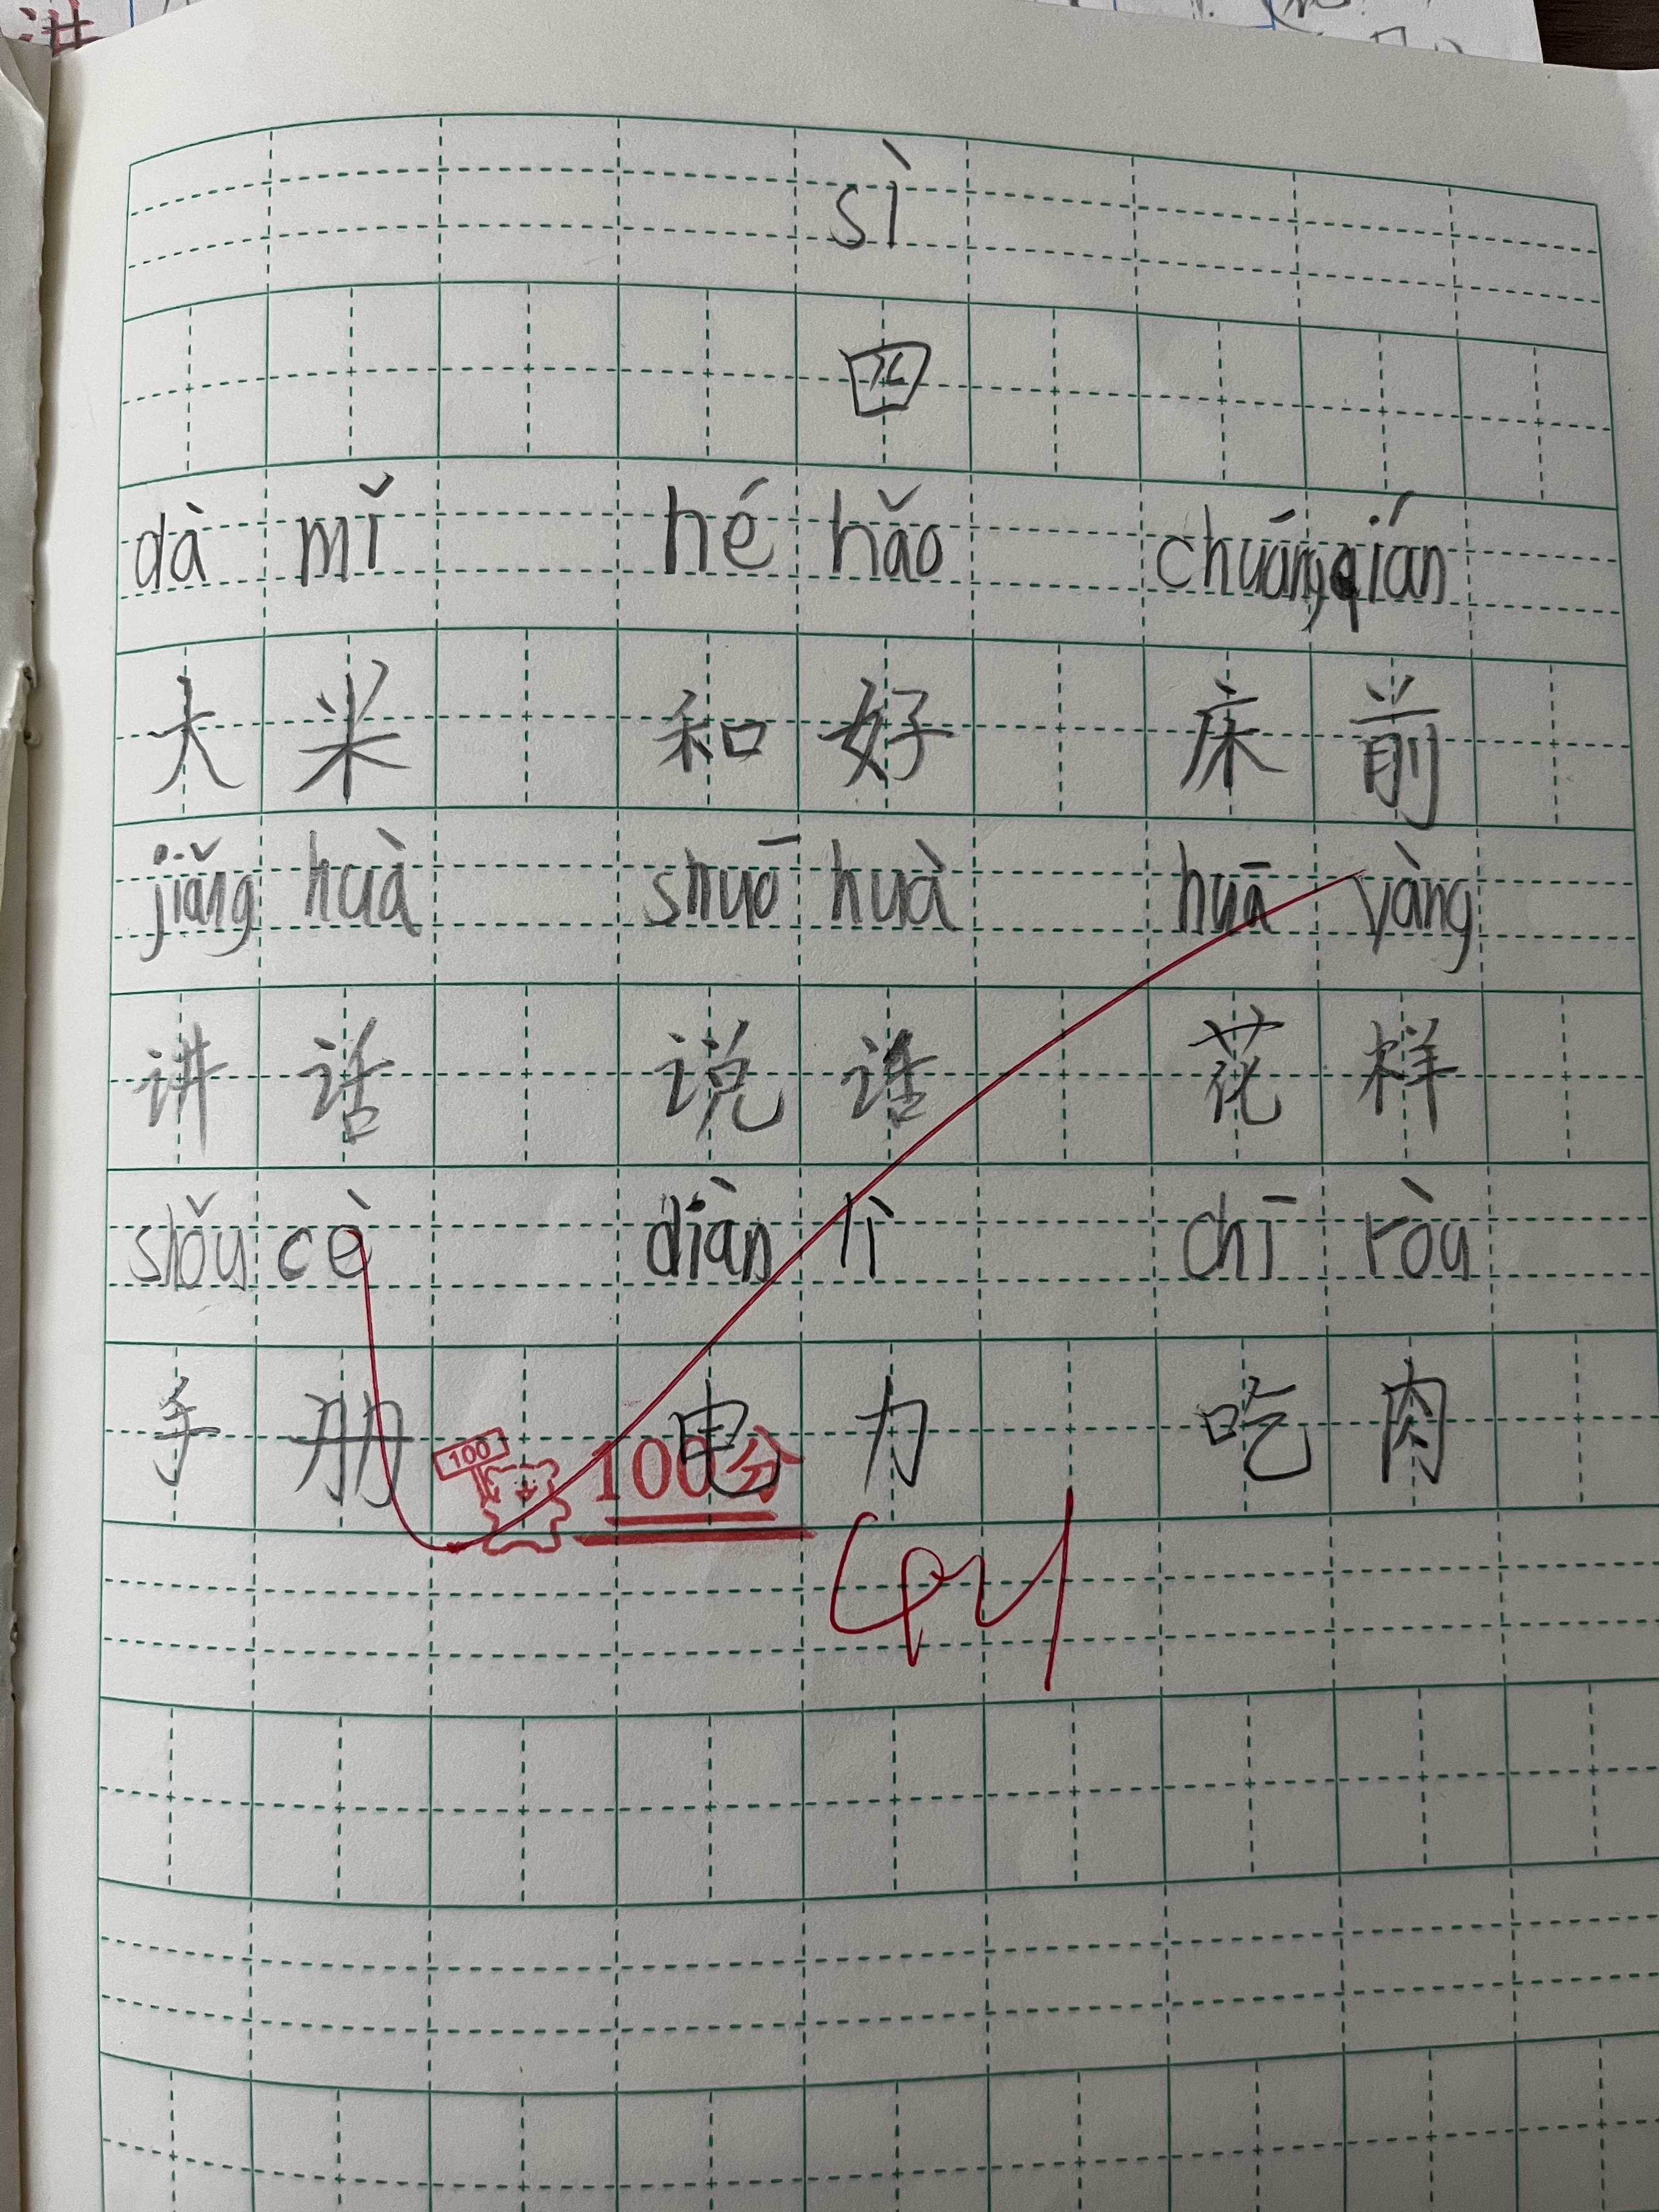 sì
四
dà mǐ hé hǎo chuáng qián
大米 和好 床前
jiǎng huà shuō huà huā yàng
讲话 说话 花样
shǒu cè diàn lì chī ròu
手册 电力 吃肉
100 100分